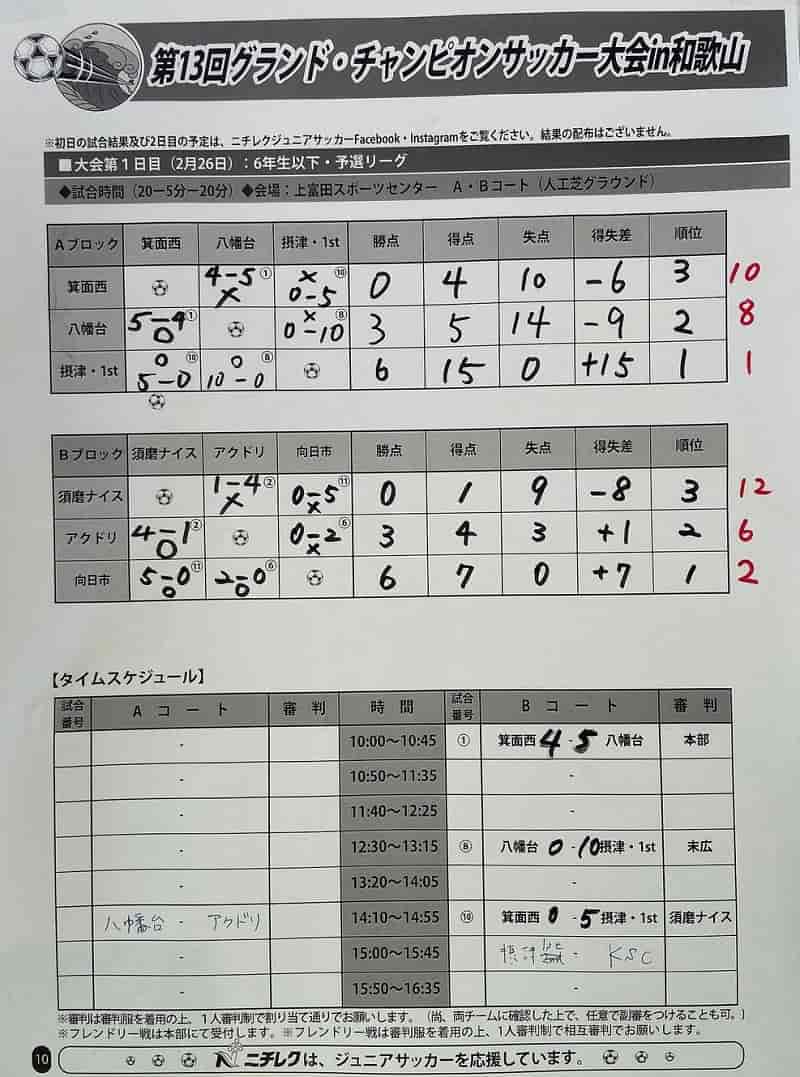 第13回グランド・チャンピオンサッカー大会in和歌山
※初日の試合結果及び2日目の予定は、ニチレクジュニアサッカーFacebook・Instagramをご覧ください。結果の配布はございません。
■大会第1日目（2月26日）：6年生以下・予選リーグ
◆試合時間（20－5分－20分）◆会場：上富田スポーツセンター　A・Bコート（人工芝グラウンド）
Aブロック 箕面西 八幡台 摂津・1st 勝点 得点 失点 得失差 順位
箕面西 4-5① × × 0-5⑩ 0 4 10 -6 3 10
八幡台 5-4① ○ × 0-10⑧ 3 5 14 -9 2 8
摂津・1st ○ 5-0⑩ ○ 10-0⑧ 6 15 0 +15 1 1
Bブロック 須磨ナイス アクドリ 向日市 勝点 得点 失点 得失差 順位
須磨ナイス 1-4② × 0-5⑪ × 0 1 9 -8 3 12
アクドリ 4-1② ○ 0-2⑥ × 3 4 3 +1 2 6
向日市 5-0⑪ ○ 2-0⑥ ○ 6 7 0 +7 1 2
【タイムスケジュール】
試合番号 Aコート 審判 時間 試合番号 Bコート 審判
- 10:00～10:45 ① 箕面西 4-5 八幡台 本部
- 10:50～11:35 -
- 11:40～12:25 -
- 12:30～13:15 ⑧ 八幡台 0-10 摂津・1st 末広
- 13:20～14:05 -
八幡台 - アクドリ 14:10～14:55 ⑩ 箕面西 0-5 摂津・1st 須磨ナイス
- 15:00～15:45 摂津 - KSC
- 15:50～16:35 -
※審判は審判服を着用の上、1人審判制で割り当て通りでお願いします。（尚、両チームに確認した上で、任意で副審をつけることも可。）
※フレンドリー戦は本部にて受付します。※フレンドリー戦は審判服を着用の上、1人審判制で相互審判でお願いします。
10 ニチレクは、ジュニアサッカーを応援しています。